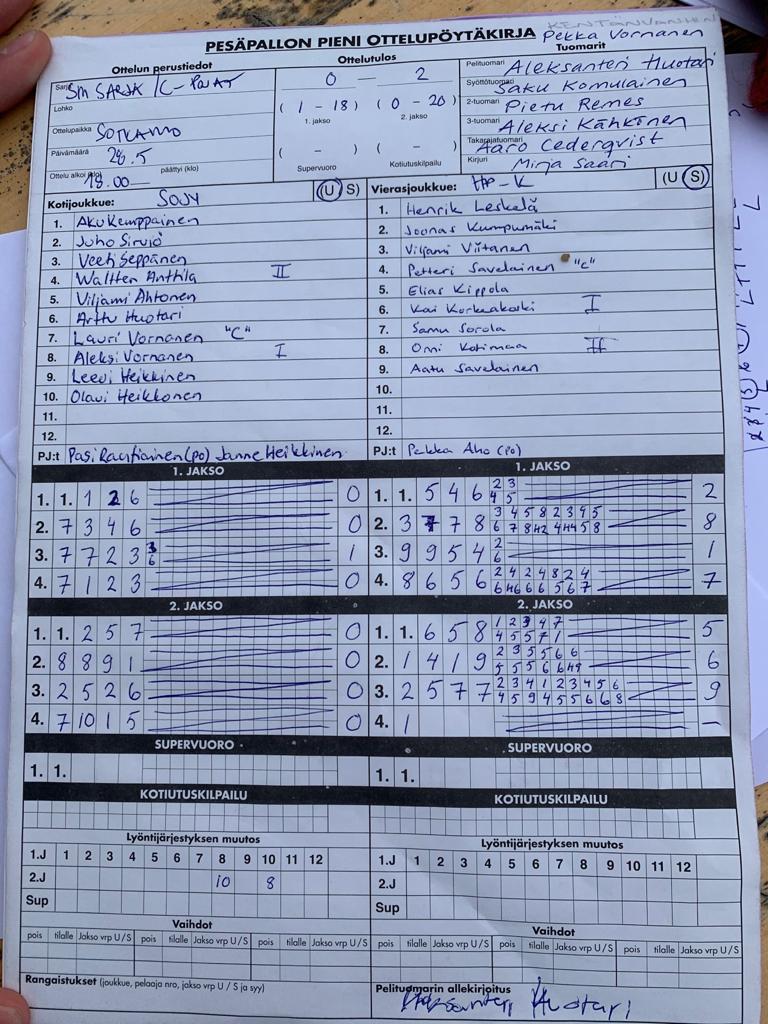 KENTÄNVANHIN
PESÄPALLON PIENI OTTELUPÖYTÄKIRJA Pekka Vornanen
Ottelun perustiedot
Ottelutulos
Tuomarit
Sarja SM SARJA /C-POJAT
Lohko
Ottelupaikka SOTKAMO
Päivämäärä 28.5
Ottelu alkoi (klo) 18.00 päättyi (klo)
0 - 2
( 1 - 18 ) ( 0 - 20 )
1. jakso 2. jakso
( - ) ( - )
Supervuoro Kotiutuskilpailu
Pelituomari Aleksanteri Huotari
Syöttötuomari Saku Komulainen
2-tuomari Pietu Remes
3-tuomari Aleksi Kähkönen
Takarajatuomari Aaro Cederqvist
Kirjuri Mirja Saari
Kotijoukkue: SOJY (U S)
1. Aku Kemppainen
2. Juho Sirviö
3. Veeti Seppänen
4. Waltteri Anttila II
5. Viljami Ahtonen
6. Arttu Huotari
7. Lauri Vornanen "C"
8. Aleksi Vornanen I
9. Leevi Heikkinen
10. Olavi Heikkonen
11.
12.
PJ:t Pasi Rautiainen (po) Janne Heikkinen
Vierasjoukkue: HP-K (U S)
1. Henrik Leskelä
2. Joonas Kumpumäki
3. Viljami Viitanen
4. Petteri Savelainen "C"
5. Elias Kippola
6. Kai Korkeakoski I
7. Samu Sorola
8. Onni Kotimaa II
9. Aatu Savelainen
10.
11.
12.
PJ:t Pekka Aho (po)
1. JAKSO
1. 1. 1 2 6 0
2. 7 3 4 6 0
3. 7 7 2 3 3 6 1
4. 7 1 2 3 0
2. JAKSO
1. 1. 2 5 7 0
2. 8 8 9 1 0
3. 2 5 2 6 0
4. 7 10 1 5 0
SUPERVUORO
1. 1.
KOTIUTUSKILPAILU
1. JAKSO
2 3
1. 1. 5 4 6 4 5 2
3 4 5 8 2 3 4 5
2. 3 7 7 8 6 7 8 H2 4 H4 5 8 8
2
3. 9 9 5 4 6 1
2 4 2 4 8 2 4
4. 8 6 5 6 6 H6 6 6 5 6 7 7
2. JAKSO
1 2 3 4 7
1. 1. 6 5 8 4 5 5 7 1 5
2 3 5 5 6 6
2. 1 4 1 9 5 5 5 6 6 H9 6
2 3 4 1 2 3 4 5 6
3. 2 5 7 7 4 5 9 4 5 5 6 6 8 9
4. 1 -
SUPERVUORO
1. 1.
KOTIUTUSKILPAILU
Lyöntijärjestyksen muutos
1.J 1 2 3 4 5 6 7 8 9 10 11 12
2.J 10 8
Sup
Vaihdot
pois tilalle Jakso vrp U/S pois tilalle Jakso vrp U/S pois tilalle Jakso vrp U/S
Rangaistukset (joukkue, pelaaja nro, jakso vrp U / S ja syy)
Lyöntijärjestyksen muutos
1.J 1 2 3 4 5 6 7 8 9 10 11 12
2.J
Sup
Vaihdot
pois tilalle Jakso vrp U/S pois tilalle Jakso vrp U/S pois tilalle Jakso vrp U/S
Pelituomarin allekirjoitus
Aleksanteri Huotari